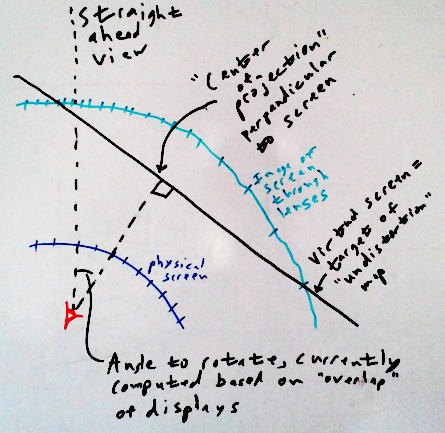 straight
ahead
view
"Center
of
projection"
perpendicular
to screen
Image of
screen
through
lenses
Virtual screen =
target of
"undistortion"
map
physical
screen
Angle to rotate, currently
computed based on "overlap"
of displays